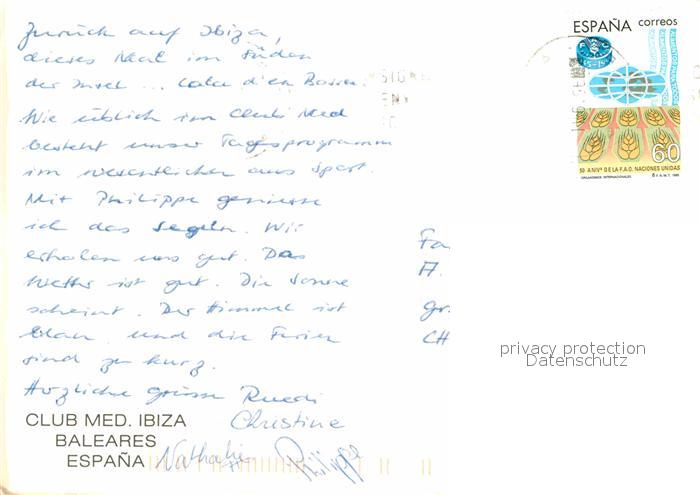 Zurück auf Ibiza,
dieses Mal im Süden
der Insel ... Cala d'en Bossa.
Wie üblich im Club Med
besteht unser Tagesprogramm
im wesentlichen aus Sport.
Mit Philippe geniesse
ich das Segeln. Wir
erholen uns gut. Das
Wetter ist gut. Die Sonne
scheint. Der Himmel ist
blau und die Ferien
sind zu kurz.
Herzliche grüsse Ruedi
Christine
Nathalie Philippe
CLUB MED. IBIZA
BALEARES
ESPAÑA
ESPAÑA correos
60
50 ANIVº DE LA F.A.O. NACIONES UNIDAS
ORGANISMOS INTERNACIONALES
F.N.M.T. 1995
Fa
A.
Gr.
CH
privacy protection
Datenschutz